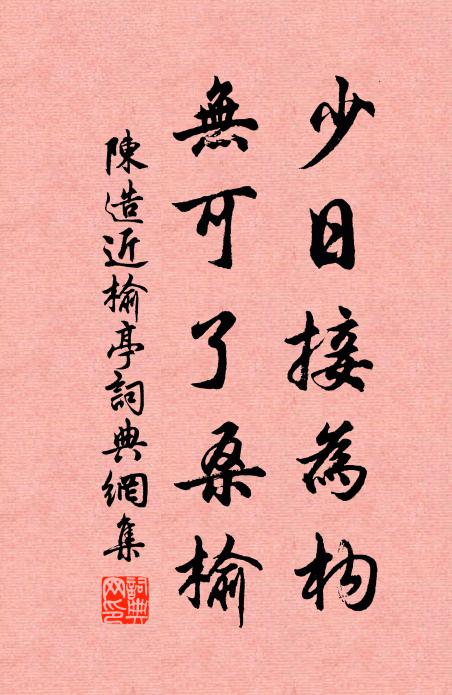 少日接為枸
無可了桑榆
陳造近榆亭詞典網集
詞典网印